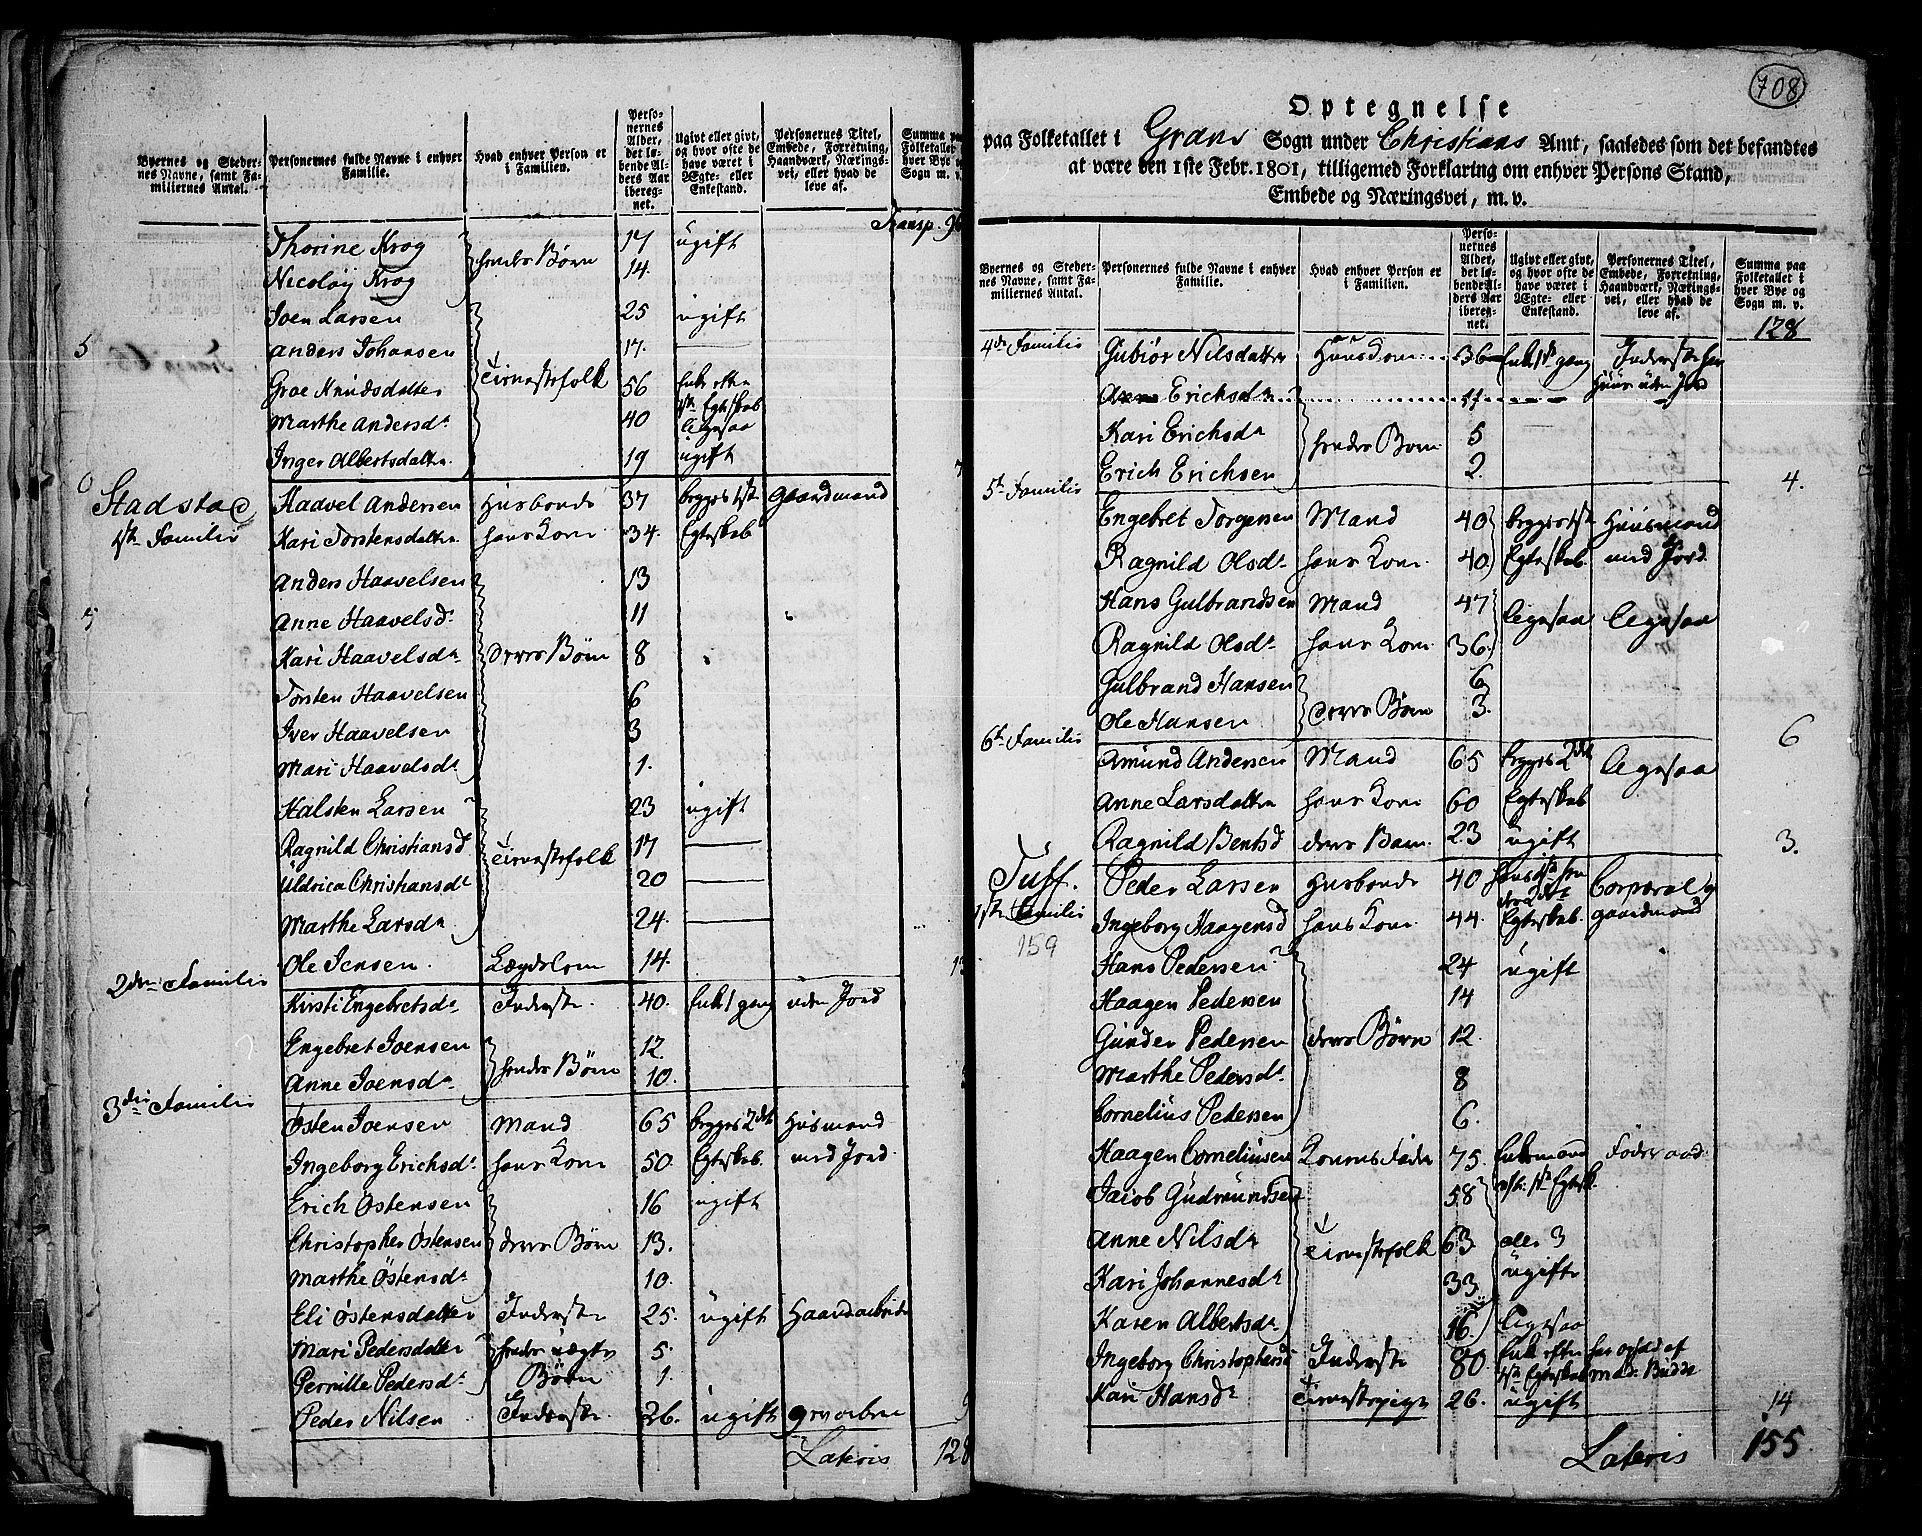 Byernes og Steder-
nes Navne, samt Fa-
miliernes Antal.
Personernes fulde Navne i enhver
Familie.
Hvad enhver Person er
i Familien.
Perso-
nernes
Alder,
det lø-
bende Al-
ders Aar
ibereg-
net.
Ugivt eller givt,
og hvor ofte de
have været i
Ægte- eller
Enkestand.
Personernes Titel,
Embede, Forretning,
Haandværk, Nærings-
vei, eller hvad de
leve af.
Summa paa
Folketallet i
hver Bye og
Sogn m. v.
Transp. 96
Thorine Krog hendes Børn 17 ugift
Nicoløy Krog 14.
Joen Larsen 25 ugift
5 Anders Johansen Tienestefolk 17.
Groe Knudsdatter 56 Enke efter
1ste Egteskab
Marthe Andersdr 40 ligesaa
Inger Albertsdatter 19 ugift 7
6
Stadstad Haavel Andersen Husbonde 37 begges 1ste Gaardmand
1ste Familie Kari Torstensdatter hans Kone 34. Egteskab
Anders Haavelsen 13
5 Anne Haavelsdr 11
Kari Haavelsdr deres Børn 8
Torsten Haavelsen 6
Iver Haavelsen 3
Mari Haavelsdr 1.
Halsten Larsen 23 ugift
Ragnild Christiansd Tienestefolk 17
Uldrica Christiansdr 20
Marthe Larsdr 24.
Ole Jensen Lægdslem 14. 13
2den Familie
Kirsti Engebretsdr Inderste 40. Enke 1 gang uden Jord
Engebret Joensen hendes Børn 12
Anne Joensdr 10.
3die Familie
Østen Joensen Mand 65 begges 2det Husmand
Ingeborg Erichsdr hans Kone 50. Egteskab. med Jord
Erich Østensen 16 ugift
Christopher Østensen deres Børn 13.
Marthe Østensdr 10.
Eli Østensdatter Inderste 25. ugift Haandarbeide
Mari Pedersdatter hendes uægte 5.
Pernille Pedersdr Børn 1.
Peder Nilsen Inderste 26. ugift 9
Lateris 128

708
Optegnelse
paa Folketallet i Grans Sogn under Christians Amt, saaledes som det befandtes
at være den 1ste Febr. 1801, tilligemed Forklaring om enhver Persons Stand,
Embede og Næringsvei, m. v.
Byernes og Steder-
nes Navne, samt Fa-
miliernes Antal.
Personernes fulde Navne i enhver
Familie.
Hvad enhver Person er
i Familien.
Perso-
nernes
Alder,
det lø-
bende Al-
ders Aar
ibereg-
net.
Ugivt eller givt,
og hvor ofte de
have været i
Ægte- eller
Enkestand.
Personernes Titel,
Embede, Forretning,
Haandværk, Nærings-
vei, eller hvad de
leve af.
Summa paa
Folketallet i
hver Bye og
Sogn m. v.
128
4de Familie Gubiør Nilsdatter Huuskone 36 Enke 1ste gang Inderste har
Huus uden Jord
Anne Erichsdr 11
Kari Erichsdr hendes Børn 5
Erich Erichsen 2. 4.
5te Familie
Engebret Torgersen Mand 40 begges 1ste Huusmand
Ragnild Olsdr hans Kone 40. Egteskab med Jord.
Hans Gulbrandsen Mand 47 ligesaa ligesaa
Ragnild Olsdr hans Kone 36.
Gulbrand Hansen 6
Ole Hansen deres Børn 3. 6
6te Familie
Amund Andersen Mand 65 begges 2det ligesaa
Anne Larsdatter hans Kone 60 Egteskab
Ragnild Bentsd deres Barn 23 ugift 3.
Tuff. Peder Larsen Husbonde 40 hans 1ste hen
des 2det Corporal og
1ste Familie Ingeborg Haagensd hans Kone 44. Egteskab. gaardmand
159
Hans Pedersen 24 ugift
Haagen Pedersen 14
Gunder Pedersen deres Børn 12.
Marthe Pedersdr 8
Cornelius Pedersen 6.
Haagen Corneliusen Konens Fader 75. Enkemand Føderaad
efter 1ste Egtesk.
Jacob Gudmundsen 58
Anne Nilsdr Tienestefolk 63 alle 3
Kari Johannesdr 33 ugifte
Karen Albertsdr 16. ligesaa
Ingeborg Christophersd Inderste 80. Enke efter har ophold af
1ste Egteskab
Kari Hansdr Tienestepige 26. ugift 14
Lateris 155